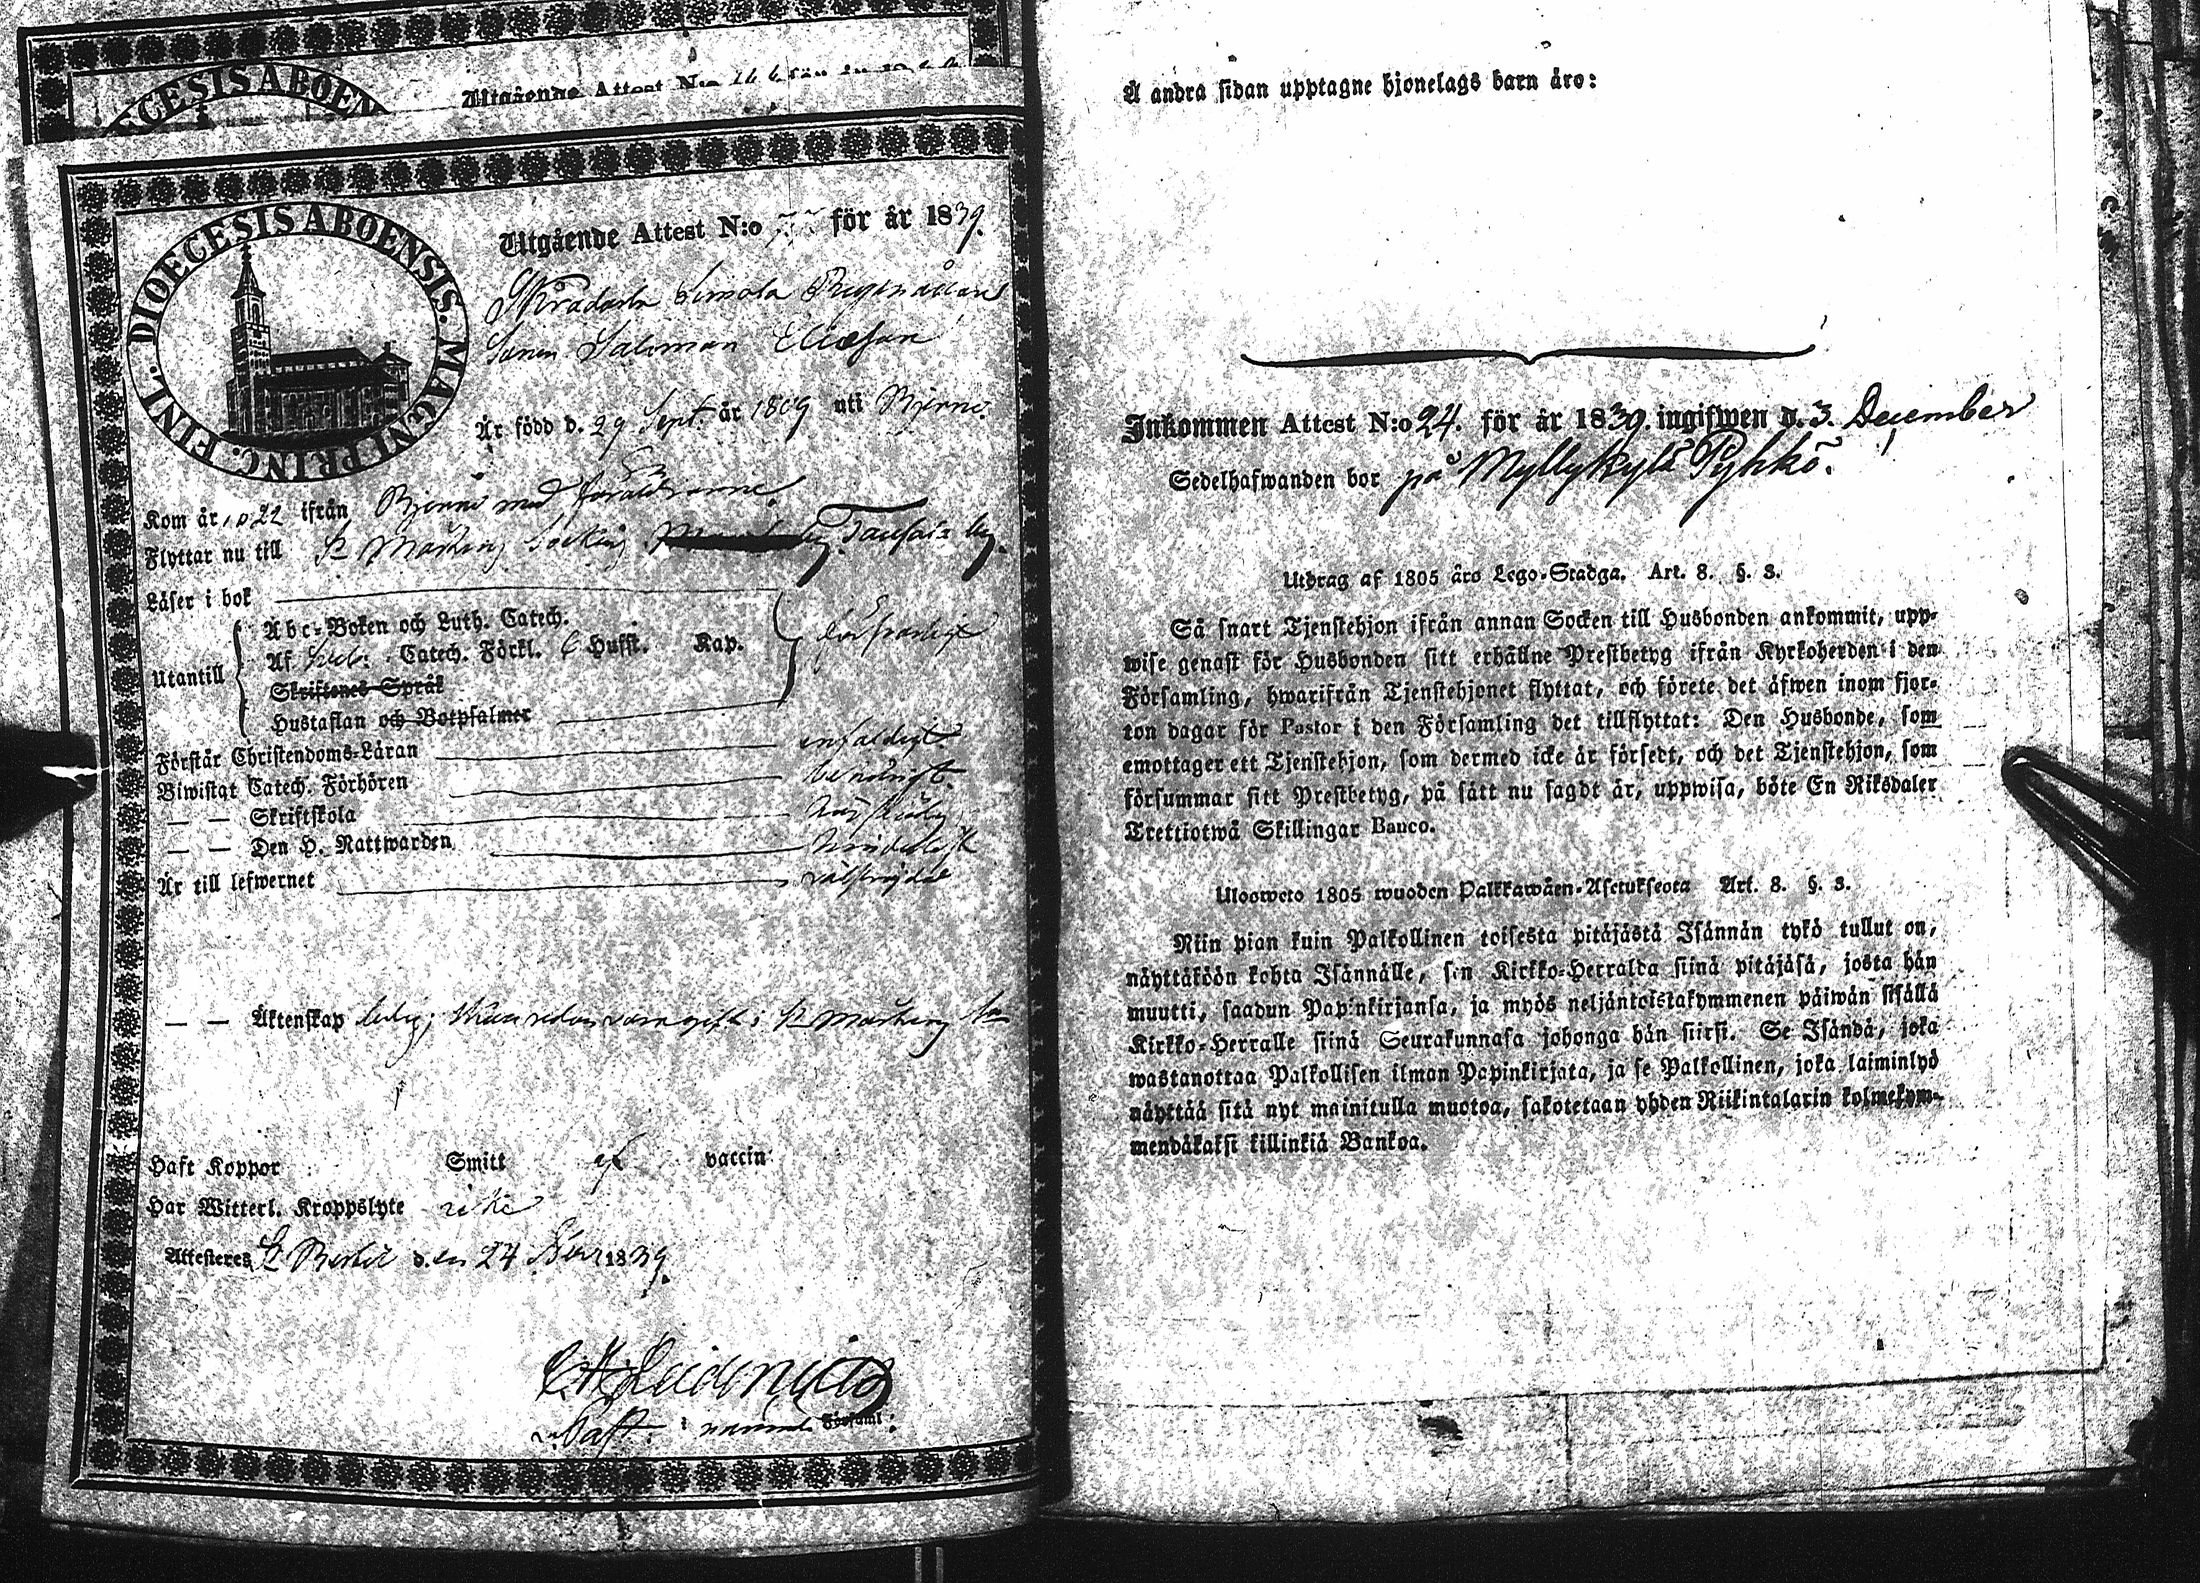 DIOECESIS ABOEN
Utgående Attest N:o
DIOECESIS ABOENSIS. MAGNI PRINC. FINL.
Utgående Attest N:o för år 1839.
Simola
Sonen Salomon Eliasson
Är född d. 29 Sept. år 1809 uti Bjerno.
Kom år 1822 ifrån Bjerno med föräldrarne.
Flyttar nu till St Mårtens Socken
Läser i bok
Utantill
Abc-Boken och Luth. Catech.
Af Sveb: Catech. Förkl. 6 Hufst. Kap. försvarligt
Skriftenes Språk
Hustaflan och Botpsalmer
Förstår Christendoms-Läran enfaldigt
Biwistat Catech. Förhören
— — Skriftskola
— — Den H. Nattwarden
Är till lefwernet välfrejdad
— — Äktenskap ledig; St Mårtens
Haft Koppor Smitt af vaccin
Har Witterl. Kroppslyte icke
Attesteres St Bertil d. en 24 1839.
Past. i Församl:
Å andra sidan upptagne hjonelags barn äro:
Inkommen Attest N:o 24. för år 1839. ingifwen d. 3. December
Sedelhafwanden bor på Myllykylä Pyhkö.
Utdrag af 1805 års Lego-Stadga. Art. 8. §. 3.
Så snart Tjenstehjon ifrån annan Socken till Husbonden ankommit, upp-
wise genast för Husbonden sitt erhållne Prestbetyg ifrån Kyrkoherden i den
Församling, hwarifrån Tjenstehjonet flyttat, och förete det äfwen inom fjor-
ton dagar för Pastor i den Församling det tillflyttat: Den Husbonde, som
emottager ett Tjenstehjon, som dermed icke är försedt, och det Tjenstehjon, som
försummar sitt Prestbetyg, på sätt nu sagdt är, uppwisa, böte En Riksdaler
Trettiotwå Skillingar Banco.
Ulosweto 1805 wuoden Palkkawäen-Asetuksesta Art. 8. §. 3.
Niin pian kuin Palkollinen toisesta pitäjästä Isännän tykö tullut on,
näyttäköön kohta Isännälle, sen Kirkko-Herralda siinä pitäjäsä, josta hän
muutti, saadun Papinkirjansa, ja myös neljäntoistakymmenen päiwän sisällä
Kirkko-Herralle siinä Seurakunnasa johonga hän siirsi. Se Isändä, joka
wastanottaa Palkollisen ilman Papinkirjata, ja se Palkollinen, joka laiminlyö
näyttää sitä nyt mainitulla muotoa, sakotetaan yhden Riikintalarin kolmekym-
mendäkaksi killinkiä Bankoa.